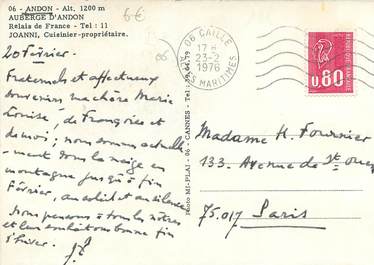 06 - ANDON - Alt. 1200 m
AUBERGE D'ANDON
Relais de France - Tel : 11
JOANNI, Cuisinier-propriétaire.
6€
20 Février.
Fraternels et affectueux
souvenirs ma chère Marie
Louise, de Françoise et
de moi ; nous sommes actuelle-
ment sous la neige en
montagne jusqu'à fin
Février, au soleil et au silence
Nous pensons à tous les nôtres
et leur souhaitons bonne fin
d'hiver.
Photo MI-PLAI - 06 - CANNES - Tel :
06 CAILLE
17 H
23-2
1976
ALPES MARITIMES
0,80
Madame H. Fournier
133. Avenue de St Ouen
75.017 Paris